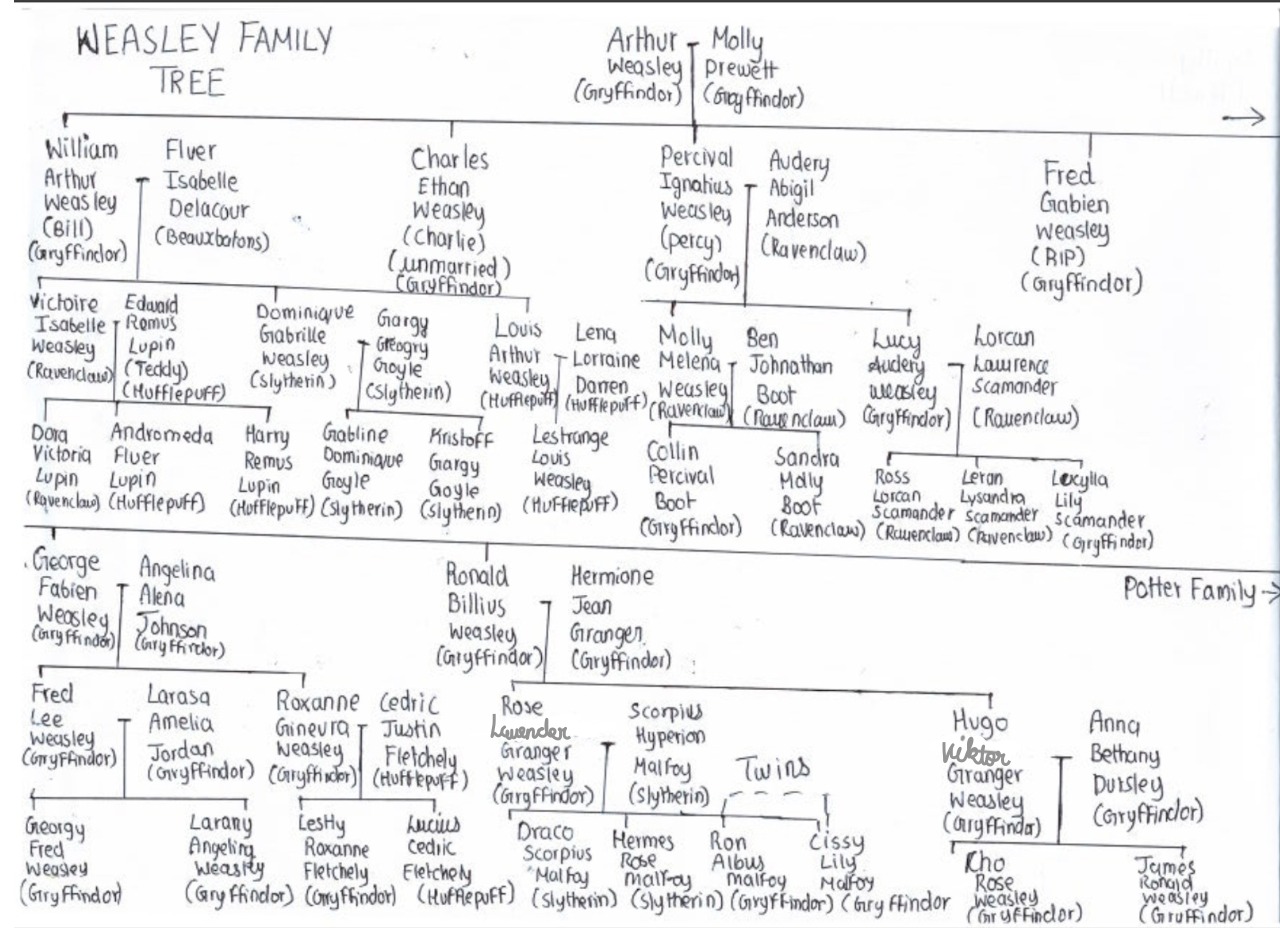 WEASLEY FAMILY
TREE
Arthur
Weasley
(Gryffindor)
Molly
Prewett
(Gryffindor)
William
Arthur
Weasley
(Bill)
(Gryffindor)
Fluer
Isabelle
Delacour
(Beauxbatons)
Charles
Ethan
Weasley
(Charlie)
(unmarried)
(Gryffindor)
Percival
Ignatius
Weasley
(percy)
(Gryffindor)
Audery
Abigil
Anderson
(Ravenclaw)
Fred
Gabien
Weasley
(RIP)
(Gryffindor)
Victoire
Isabelle
Weasley
(Ravenclaw)
Edward
Remus
Lupin
(Teddy)
(Hufflepuff)
Dominique
Gabrille
Weasley
(Slytherin)
Gargy
Greogry
Goyle
(Slytherin)
Louis
Arthur
Weasley
(Hufflepuff)
Lena
Lorraine
Darren
(Hufflepuff)
Molly
Melena
Weasley
(Ravenclaw)
Ben
Johnathan
Boot
(Ravenclaw)
Lucy
Audery
Weasley
(Gryffindor)
Lorcan
Lawrence
Scamander
(Ravenclaw)
Dora
Victoria
Lupin
(Ravenclaw)
Andromeda
Fluer
Lupin
(Hufflepuff)
Harry
Remus
Lupin
(Hufflepuff)
Gabline
Dominique
Goyle
(Slytherin)
Kristoff
Gargy
Goyle
(Slytherin)
Lestrange
Louis
Weasley
(Hufflepuff)
Collin
Percival
Boot
(Gryffindor)
Sandra
Molly
Boot
(Ravenclaw)
Ross
Lorcan
Scamander
(Ravenclaw)
Leran
Lysandra
Scamander
(Ravenclaw)
Lecylla
Lily
Scamander
(Gryffindor)
George
Fabien
Weasley
(Gryffindor)
Angelina
Alena
Johnson
(Gryffindor)
Ronald
Billius
Weasley
(Gryffindor)
Hermione
Jean
Granger
(Gryffindor)
Potter Family →
Fred
Lee
Weasley
(Gryffindor)
Larasa
Amelia
Jordan
(Gryffindor)
Roxanne
Ginevra
Weasley
(Gryffindor)
Cedric
Justin
Fletchely
(Hufflepuff)
Rose
Lavender
Granger
Weasley
(Gryffindor)
Scorpius
Hyperion
Malfoy
(Slytherin)
Twins
Hugo
Viktor
Granger
Weasley
(Gryffindor)
Anna
Bethany
Dursley
(Gryffindor)
Georgy
Fred
Weasley
(Gryffindor)
Larany
Angelina
Weasley
(Gryffindor)
Leslly
Roxanne
Fletchely
(Gryffindor)
Lucius
Cedric
Fletchely
(Hufflepuff)
Draco
Scorpius
Malfoy
(Slytherin)
Hermes
Rose
Malfoy
(Slytherin)
Ron
Albus
Malfoy
(Gryffindor)
Cissy
Lily
Malfoy
(Gryffindor
Cho
Rose
Weasley
(Gryffindor)
James
Ronald
Weasley
(Gryffindor)